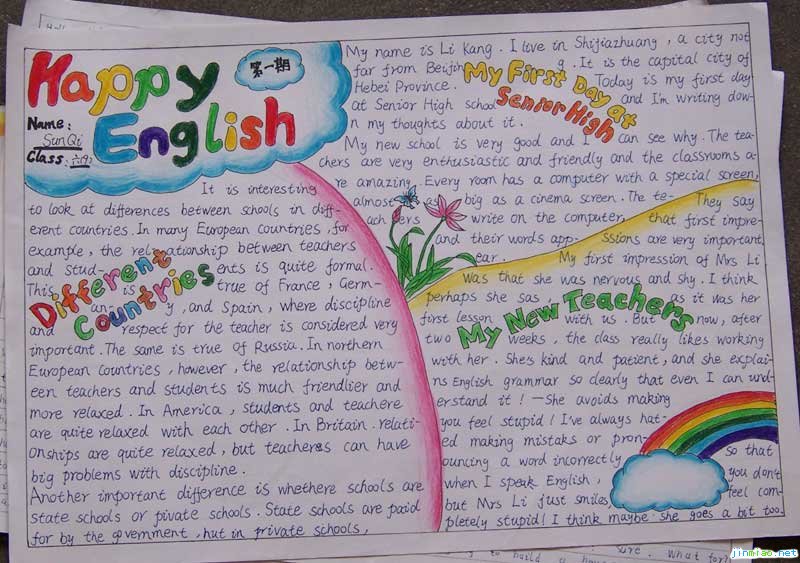 Happy
English
第一期
Name:
Sun Qi
Class:
It is interesting
to look at differences between schools in diff-
erent countries. In many European countries, for
example, the relationship between teachers
and stud- ents is quite formal.
This is true of France, Germ-
an- y, and Spain, where discipline
and respect for the teacher is considered very
important. The same is true of Russia. In northern
European countries, however, the relationship betw-
een teachers and students is much friendlier and
more relaxed. In America, students and teachere
are quite relaxed with each other. In Britain. relati-
onships are quite relaxed, but teachers can have
big problems with discipline.
Another important difference is whethere schools are
state schools or pivate schools. State schools are paid
for by the government, but in private schools,
Different
Countries
My name is Li Kang. I live in Shijiazhuang, a city not
far from Beijin g. It is the capital city of
Hebei Province. Today is my first day
at Senior High school and I'm writing dow-
n my thoughts about it.
My First Day at
Senior High
My new school is very good and I can see why. The tea-
chers are very enthusiastic and friendly and the classrooms a-
re amazing. Every room has a computer with a special screen,
almost as big as a cinema screen. The te-
ach ers write on the computer,
and their words app-
ear.
They say
that first impre-
ssions are very important.
My first impression of Mrs Li
was that she was nervous and shy. I think
perhaps she sas, as it was her
first lesson with us. But now, after
two weeks, the class really likes working
with her. She's kind and patient, and she explai-
ns English grammar so clearly that even I can und-
erstand it! —She avoids making
you feel stupid! I've always hat-
ed making mistaks or pron-
ouncing a word incorrectly
when I speak English,
but Mrs Li just smiles,
so that
you don't
feel com-
pletely stupid! I think maybe she goes a bit too
My New Teachers
jinmiao.net